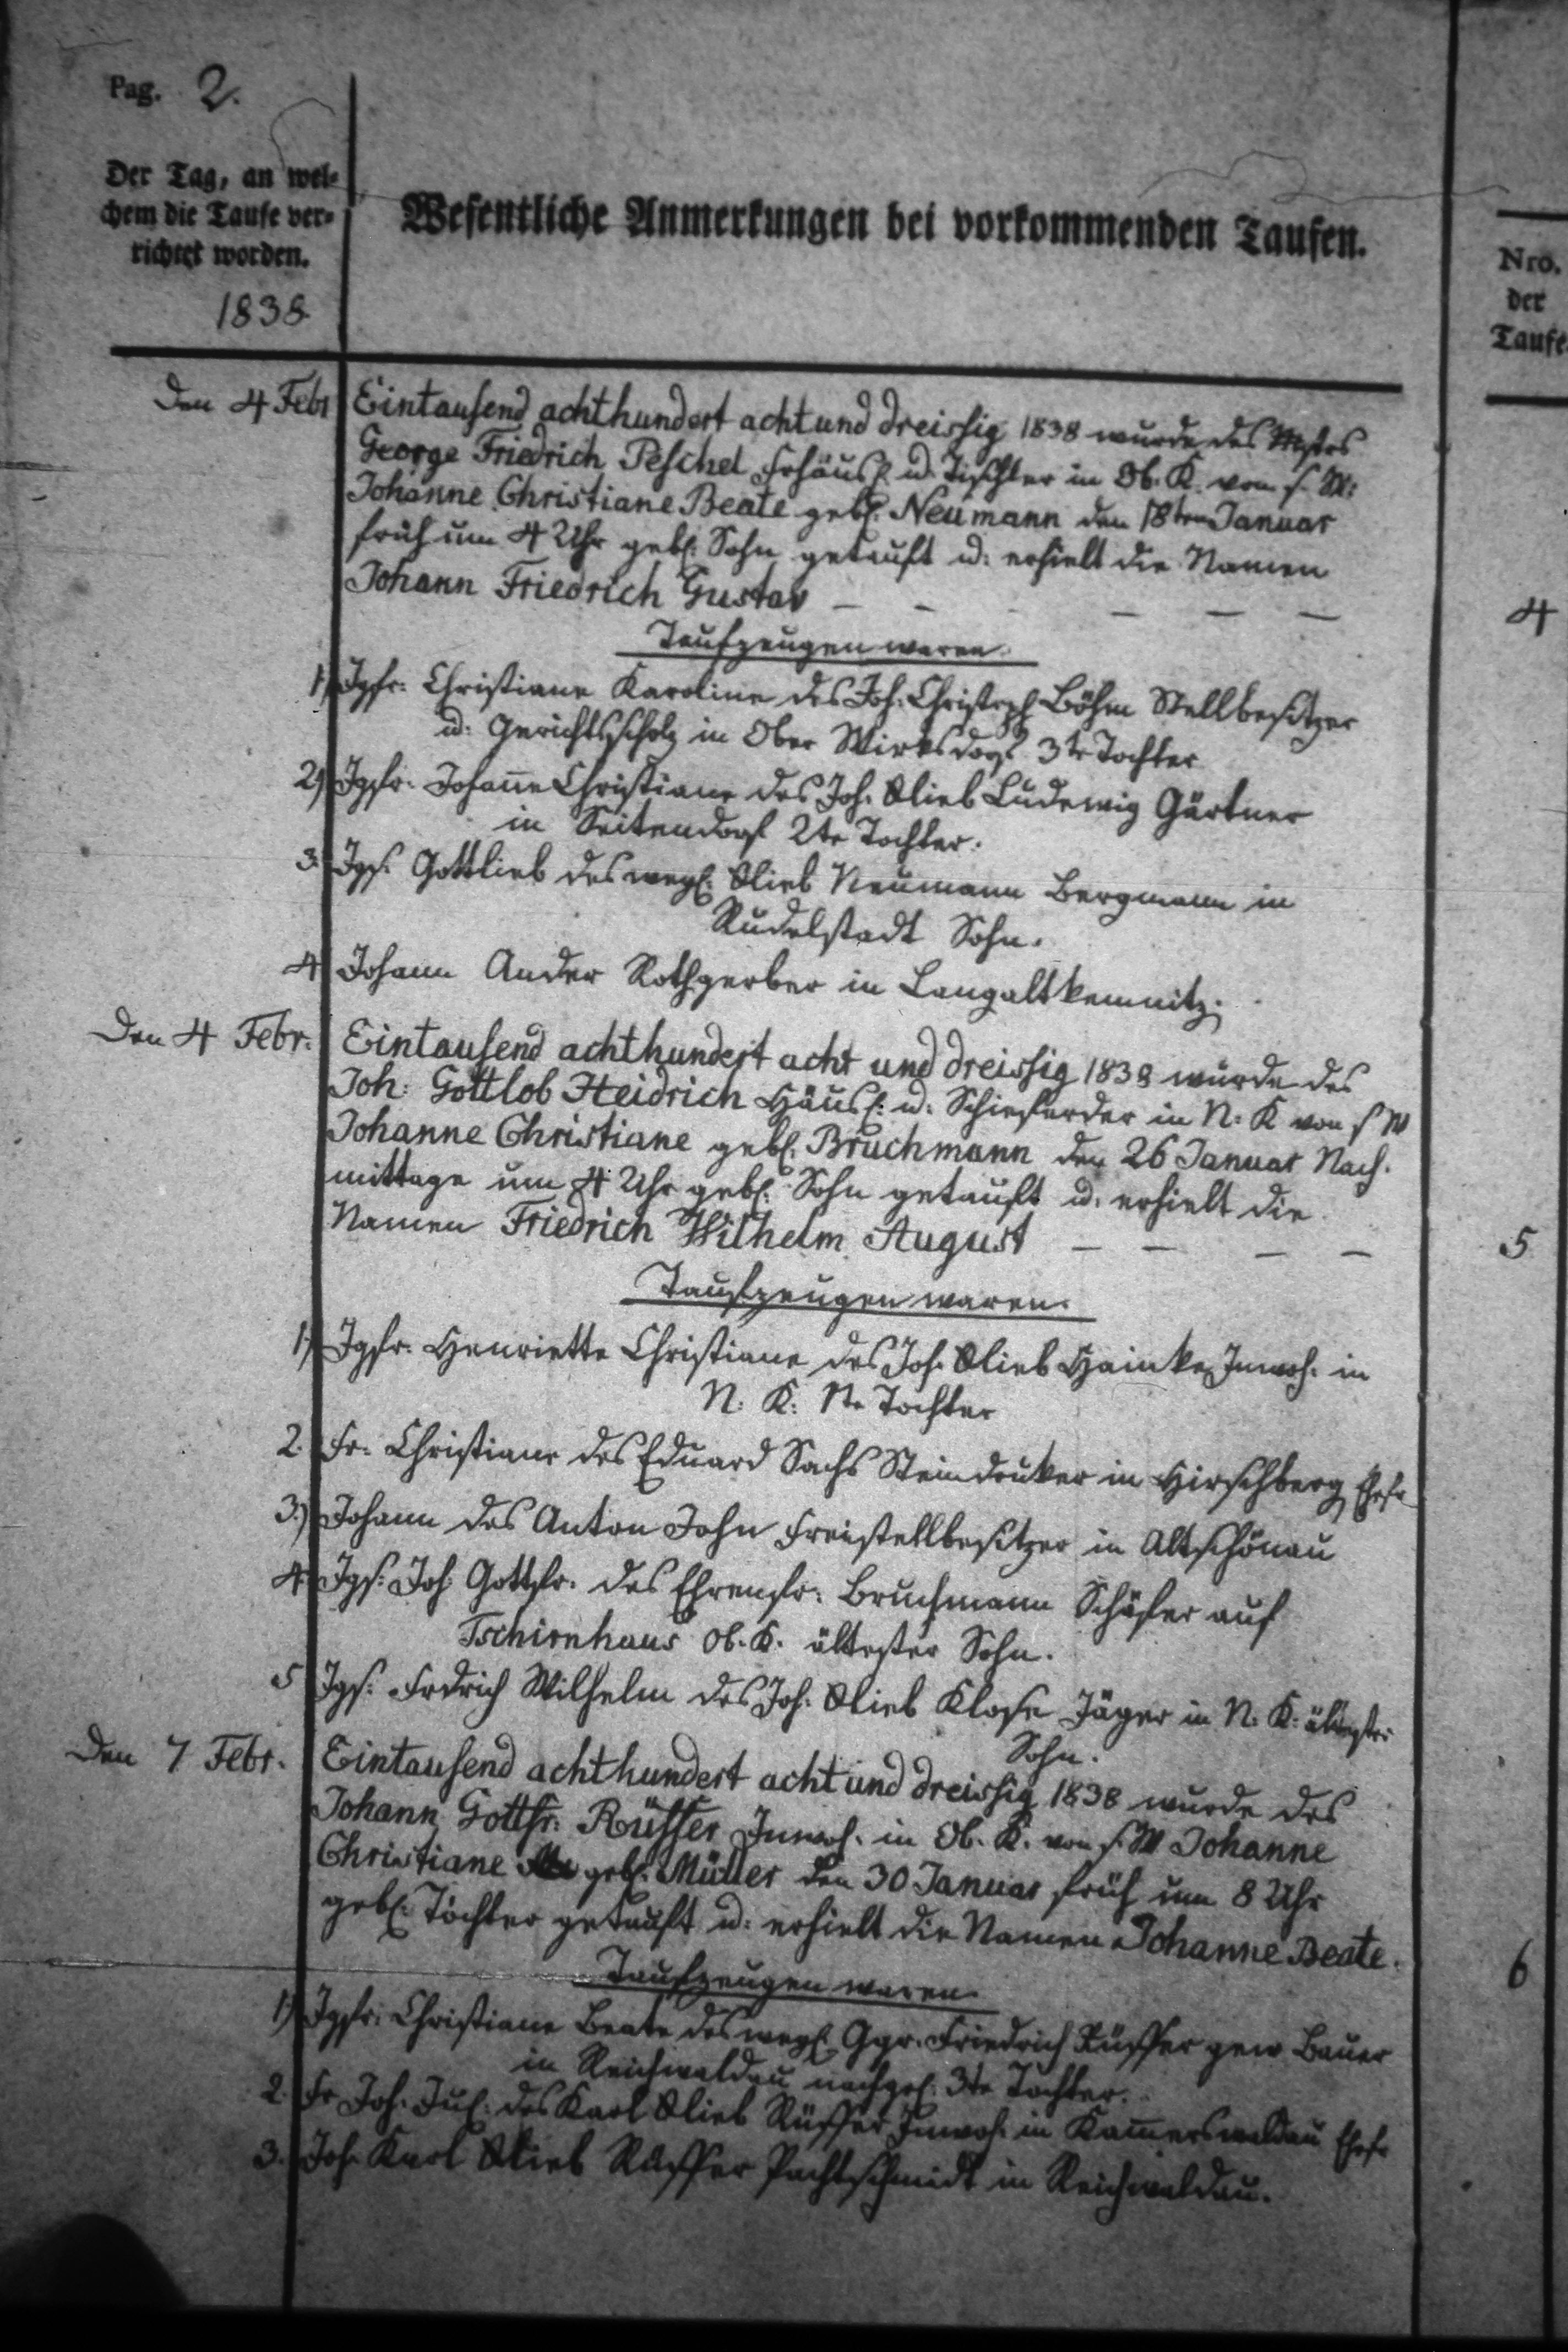 Pag. 2.
Der Tag, an wel-
chem die Taufe ver-
richtet worden.
1838
Wesentliche Anmerkungen bei vorkommenden Taufen.
Nro.
der
Taufe
Den 4 Febr Eintausend achthundert acht und dreissig 1838 wurde des Mstrs
George Friedrich Peschel Frhäusl. u. Tischler in Ob. K. von s. W:
Johanne Christiane Beate geb. Neumann den 18ten Januar
früh um 4 Uhr geb. Sohn getauft u. erhielt die Namen
Johann Friedrich Gustav — — — — — —
4
Taufzeugen waren.
1) Jgfr. Christiane Karoline des Joh. Christoph Böhm Stellbesitzer
u. Gerichtsscholz in Ober Würksdorf 3te Tochter
2) Jgfr. Johanne Christiane des Joh. Glieb Ludewig Gärtner
in Seitendorf 2te Tochter.
3. Jgs. Gottlieb des wegl. Glieb Neumann Bergmann in
Rudelstadt Sohn.
4 Johann Ander Rothgerber in Langaltkemnitz.
Den 4 Febr. Eintausend achthundert acht und dreissig 1838 wurde des
Joh. Gottlob Heidrich Häusl. u. in N. K von s W
Johanne Christiane geb. Bruchmann den 26 Januar Nach.
mittage um 4 Uhr geb. Sohn getauft u. erhielt die
Namen Friedrich Wilhelm August — — — —
5
Taufzeugen waren.
1) Jgfr. Henriette Christiane des Joh. Glieb Hainke Inwoh. in
N. K. 1te Tochter
2. Fr. Christiane des Eduard Sachs Steindruker in Hirschberg Ehefr
3.) Johann des Anton John Freistellbesitzer in Altschönau
4. Jgs. Joh. Gottfr. des Ehrenfr. Bruchmann Schäfer auf
Tschirnhaus Ob. K. ältester Sohn.
5 Jgs. Frdrich Wilhelm des Joh. Glieb Klose Jäger in N. K.
Sohn.
Den 7 Febr. Eintausend achthundert acht und dreissig 1838 wurde des
Johann Gottfr. Rüffer Inwoh. in Ob. K. von s. W Johanne
Christiane geb. Müller den 30 Januar früh um 8 Uhr
geb. Tochter getauft u. erhielt die Namen Johanne Beate.
6
Taufzeugen waren.
1) Jgfr. Christiane Beate des wegl. Ggr. Friedrich Rüffer gew Bauer
in Reichwaldau nachgel. 3te Tochter.
2. Fr Joh. Jul. des Karl Glieb Rüffer Inwoh. in Kamerswaldau Ehefr
3. Joh. Karl Glieb Rüffer Pachtschmidt in Reichwaldau.